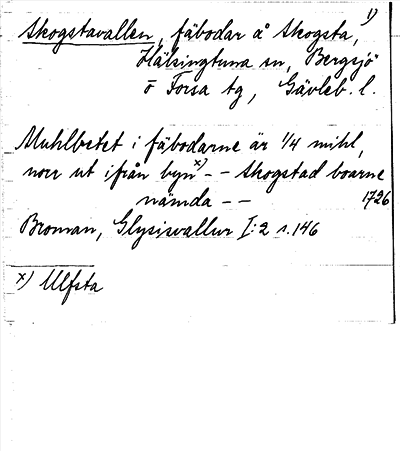 1)
Skogstavallen, fäbodar å Skogsta,
Hälsingtuna sn, Bergsjö
o Forsa tg, Gävleb. l.
Muhlbetet i fäbodarne är 1/4 mihl,
norr ut ifrån byn x) - - Skogstad boarne
nämda - - 1726
Broman, Glysisvallur I:2 s. 146
x) Ulfsta